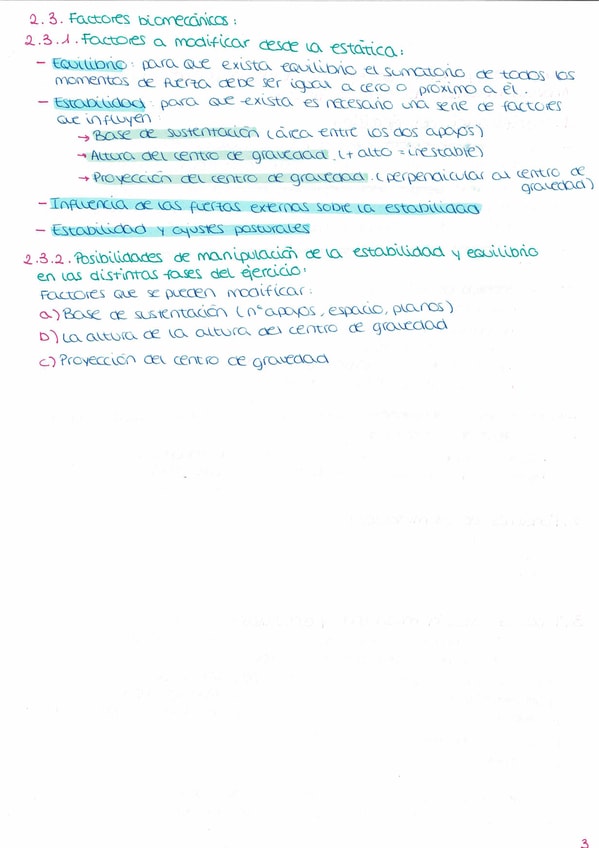 2.3. Factores biomecánicos:
2.3.1. Factores a modificar desde la estática:
- Equilibrio: para que exista equilibrio el sumatorio de todos los
momentos de fuerza debe ser igual a cero o próximo a él.
- Estabilidad: para que exista es necesario una serie de factores
que influyen:
→ Base de sustentación (área entre los dos apoyos)
→ Altura del centro de gravedad. (+ alto = inestable)
→ Proyección del centro de gravedad. (perpendicular al centro de
gravedad)
- Influencia de las fuerzas externas sobre la estabilidad
- Estabilidad y ajustes posturales
2.3.2. Posibilidades de manipulación de la estabilidad y equilibrio
en las distintas fases del ejercicio:
Factores que se pueden modificar:
a) Base de sustentación (nº apoyos, espacio, planos)
b) La altura de la altura del centro de gravedad
c) Proyección del centro de gravedad
3